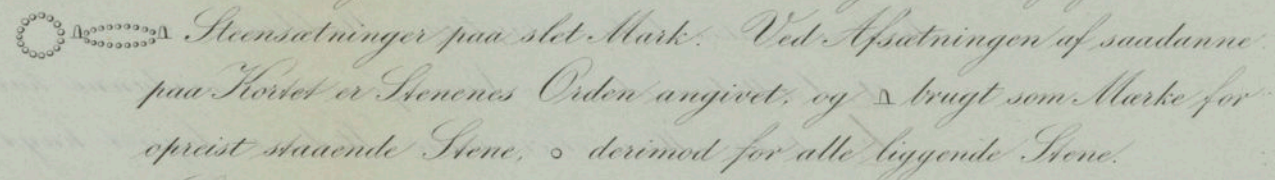 Steensætninger paa slet Mark. Ved Afsætningen af saadanne
paa Kortet er Stenenes Orden angivet, og ∩ brugt som Mærke for
opreist staaende Stene, o derimod for alle liggende Stene.